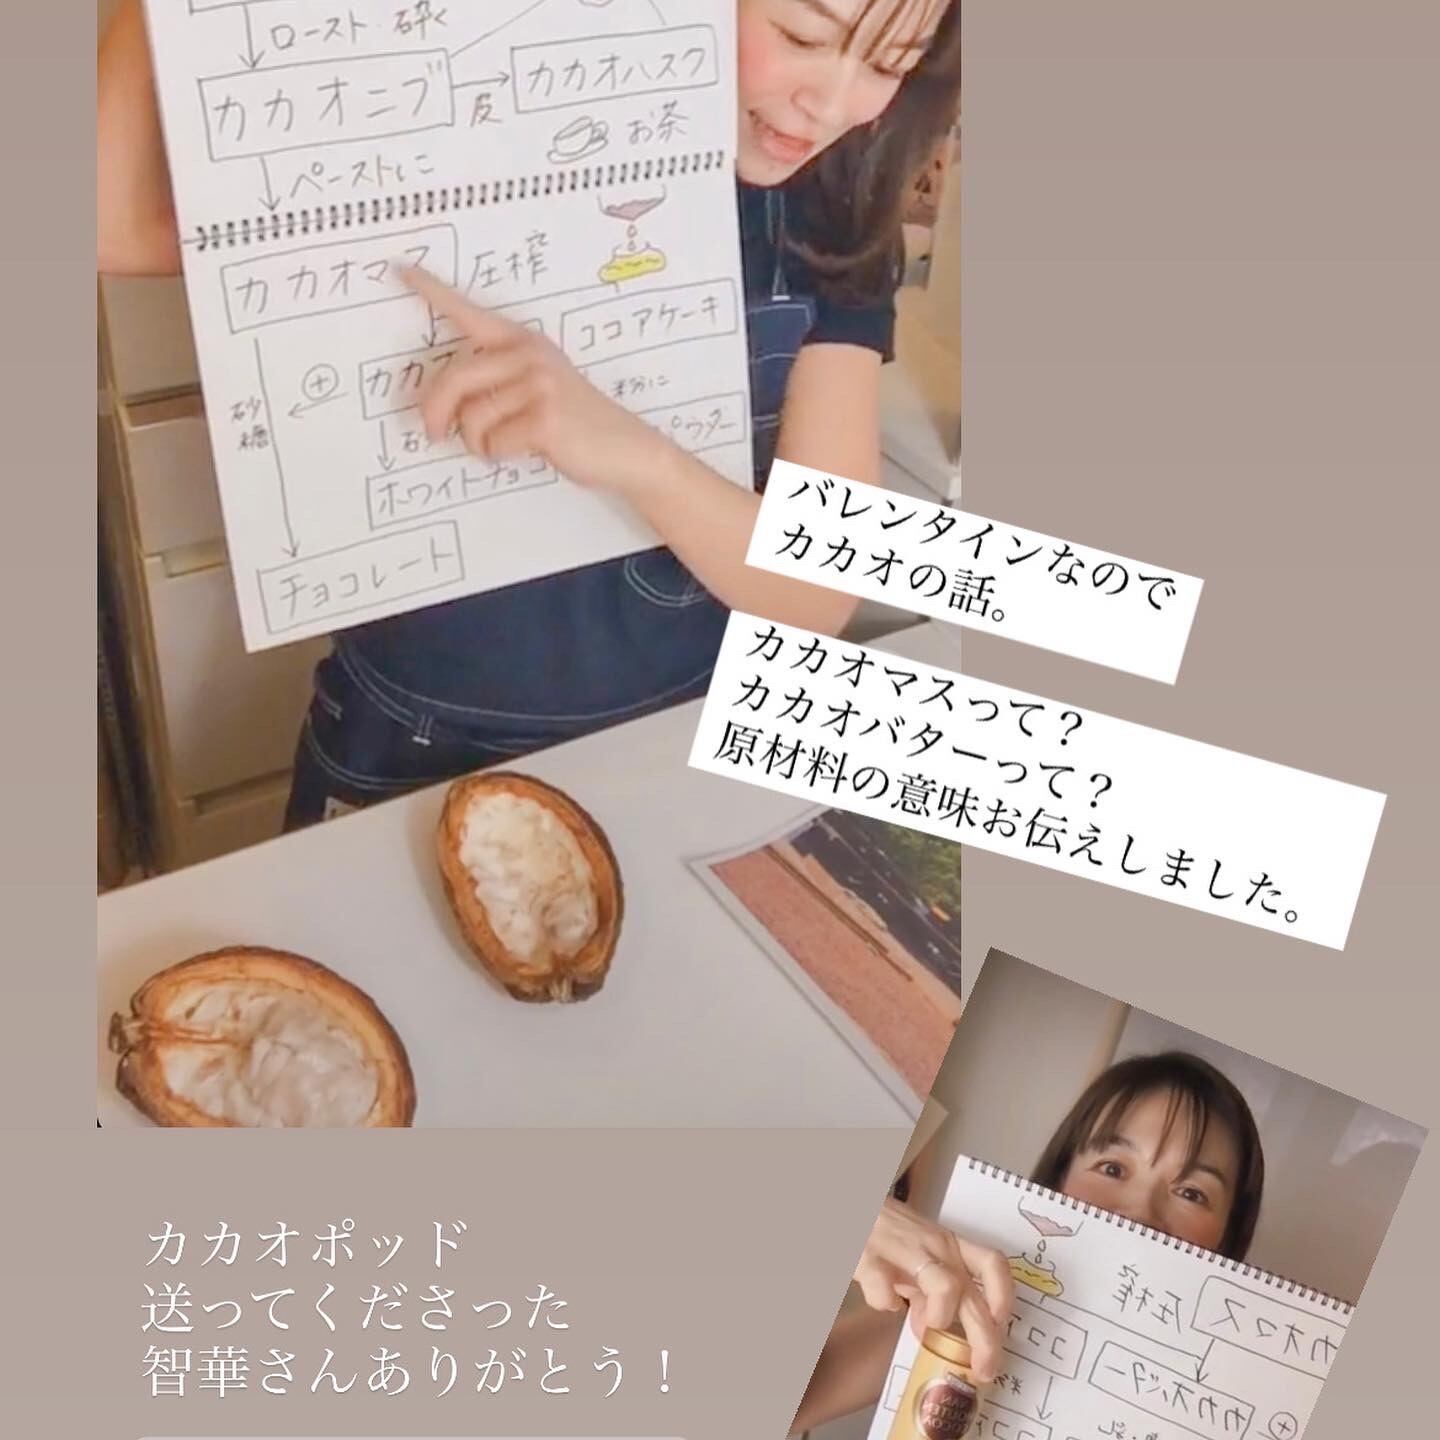 ロースト・砕く
カカオニブ
皮
カカオハスク
お茶
ペーストに
カカオマス
圧搾
ココアケーキ
砂糖
粉に
パウダー
ホワイトチョコ
チョコレート
バレンタインなので
カカオの話。
カカオマスって？
カカオバターって？
原材料の意味お伝えしました。
カカオポッド
送ってくださった
智華さんありがとう！
圧搾
カカオマス
カカオバター